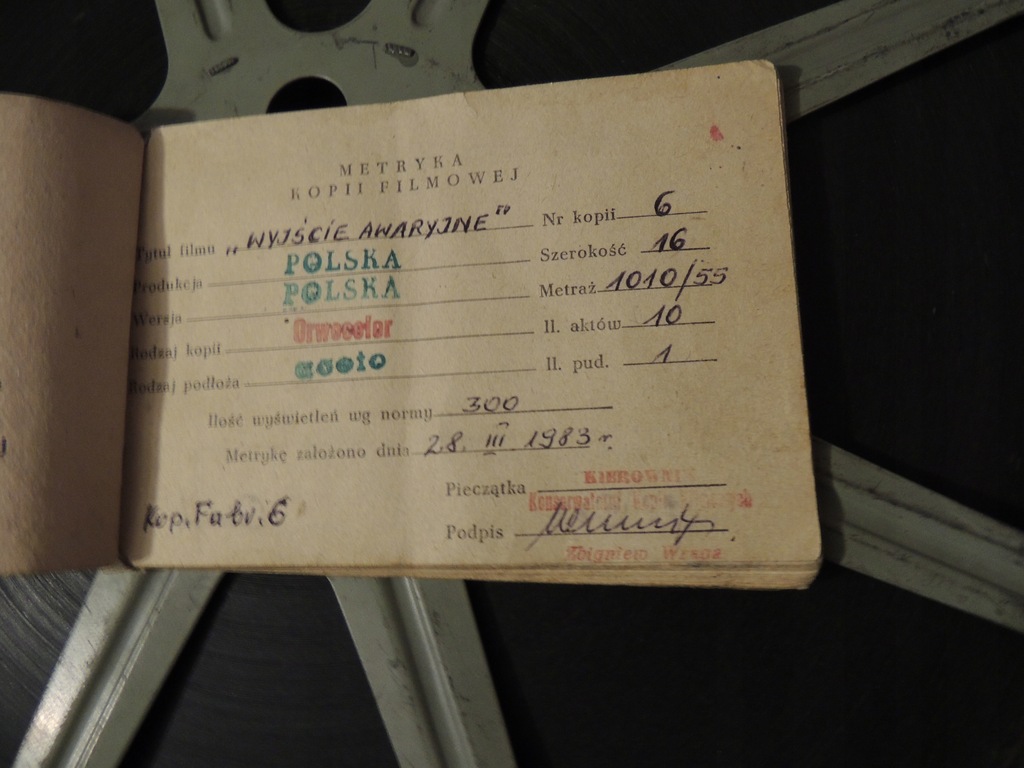 METRYKA
KOPII FILMOWEJ
Tytuł filmu „WYJŚCIE AWARYJNE" Nr kopii 6
Produkcja POLSKA Szerokość 16
Wersja POLSKA Metraż 1010/55
Rodzaj kopii Orwocolor Il. aktów 10
Rodzaj podłoża aceto Il. pud. 1
Ilość wyświetleń wg normy 300
Metrykę założono dnia 28. III 1983 r.
Pieczątka KIEROWNIK
Kop. Fabr. 6
Podpis
Zbigniew